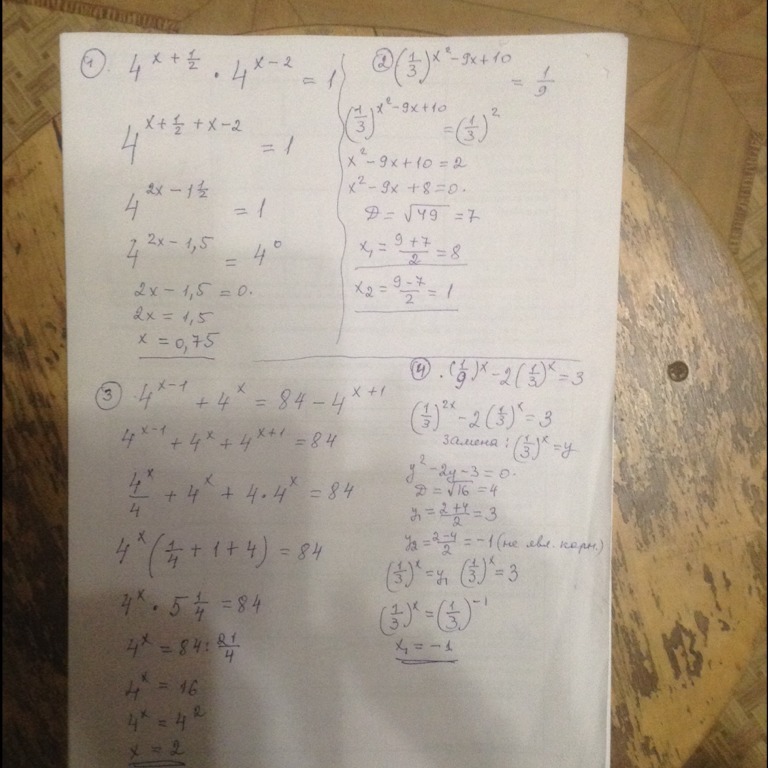 ① 4^(x + 1/2) · 4^(x-2) = 1
4^(x + 1/2 + x-2) = 1
4^(2x - 1 1/2) = 1
4^(2x - 1,5) = 4^0
2x - 1,5 = 0.
2x = 1,5
x = 0,75
② (1/3)^(x²-9x+10) = 1/9
(1/3)^(x²-9x+10) = (1/3)^2
x² - 9x + 10 = 2
x² - 9x + 8 = 0.
D = √49 = 7
x₁ = (9+7)/2 = 8
x₂ = (9-7)/2 = 1
③ 4^(x-1) + 4^x = 84 - 4^(x+1)
4^(x-1) + 4^x + 4^(x+1) = 84
4^x/4 + 4^x + 4·4^x = 84
4^x (1/4 + 1 + 4) = 84
4^x · 5 1/4 = 84
4^x = 84 : 21/4
4^x = 16
4^x = 4^2
x = 2
④ · (1/9)^x - 2(1/3)^x = 3
(1/3)^(2x) - 2(1/3)^x = 3
замена: (1/3)^x = y
y² - 2y - 3 = 0.
D = √16 = 4
y₁ = (2+4)/2 = 3
y₂ = (2-4)/2 = -1 (не явл. корн.)
(1/3)^x = y₁ (1/3)^x = 3
(1/3)^x = (1/3)^(-1)
x₁ = -1